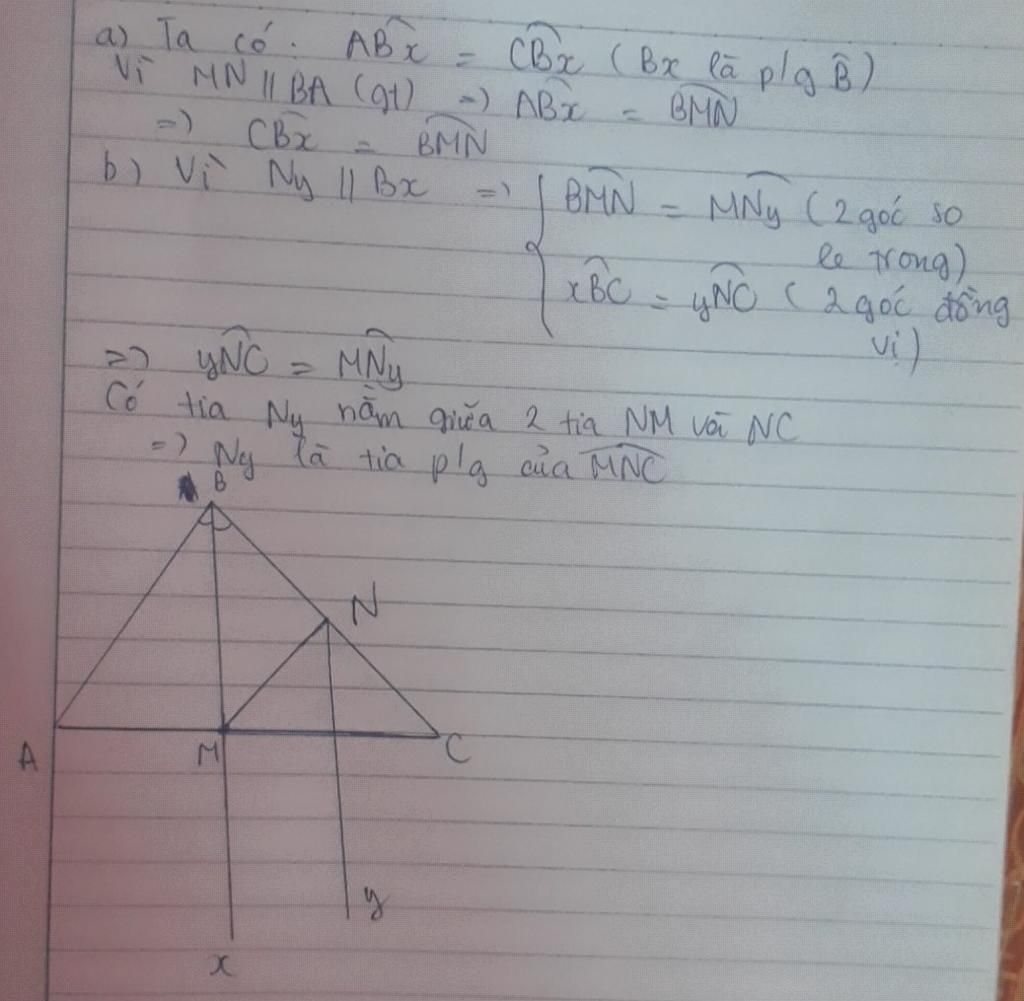 a) Ta có: ABx = CBx (Bx là p/g B)
Vì MN // BA (gt) => ABx = BMN
=> CBx = BMN
b) Vì Ny // Bx => { BMN = MNy (2 góc so
le trong)
xBC = yNC (2 góc đồng
vị)
=> yNC = MNy
Có tia Ny nằm giữa 2 tia NM và NC
=> Ny là tia p/g của MNC
B
N
A
M
C
y
x